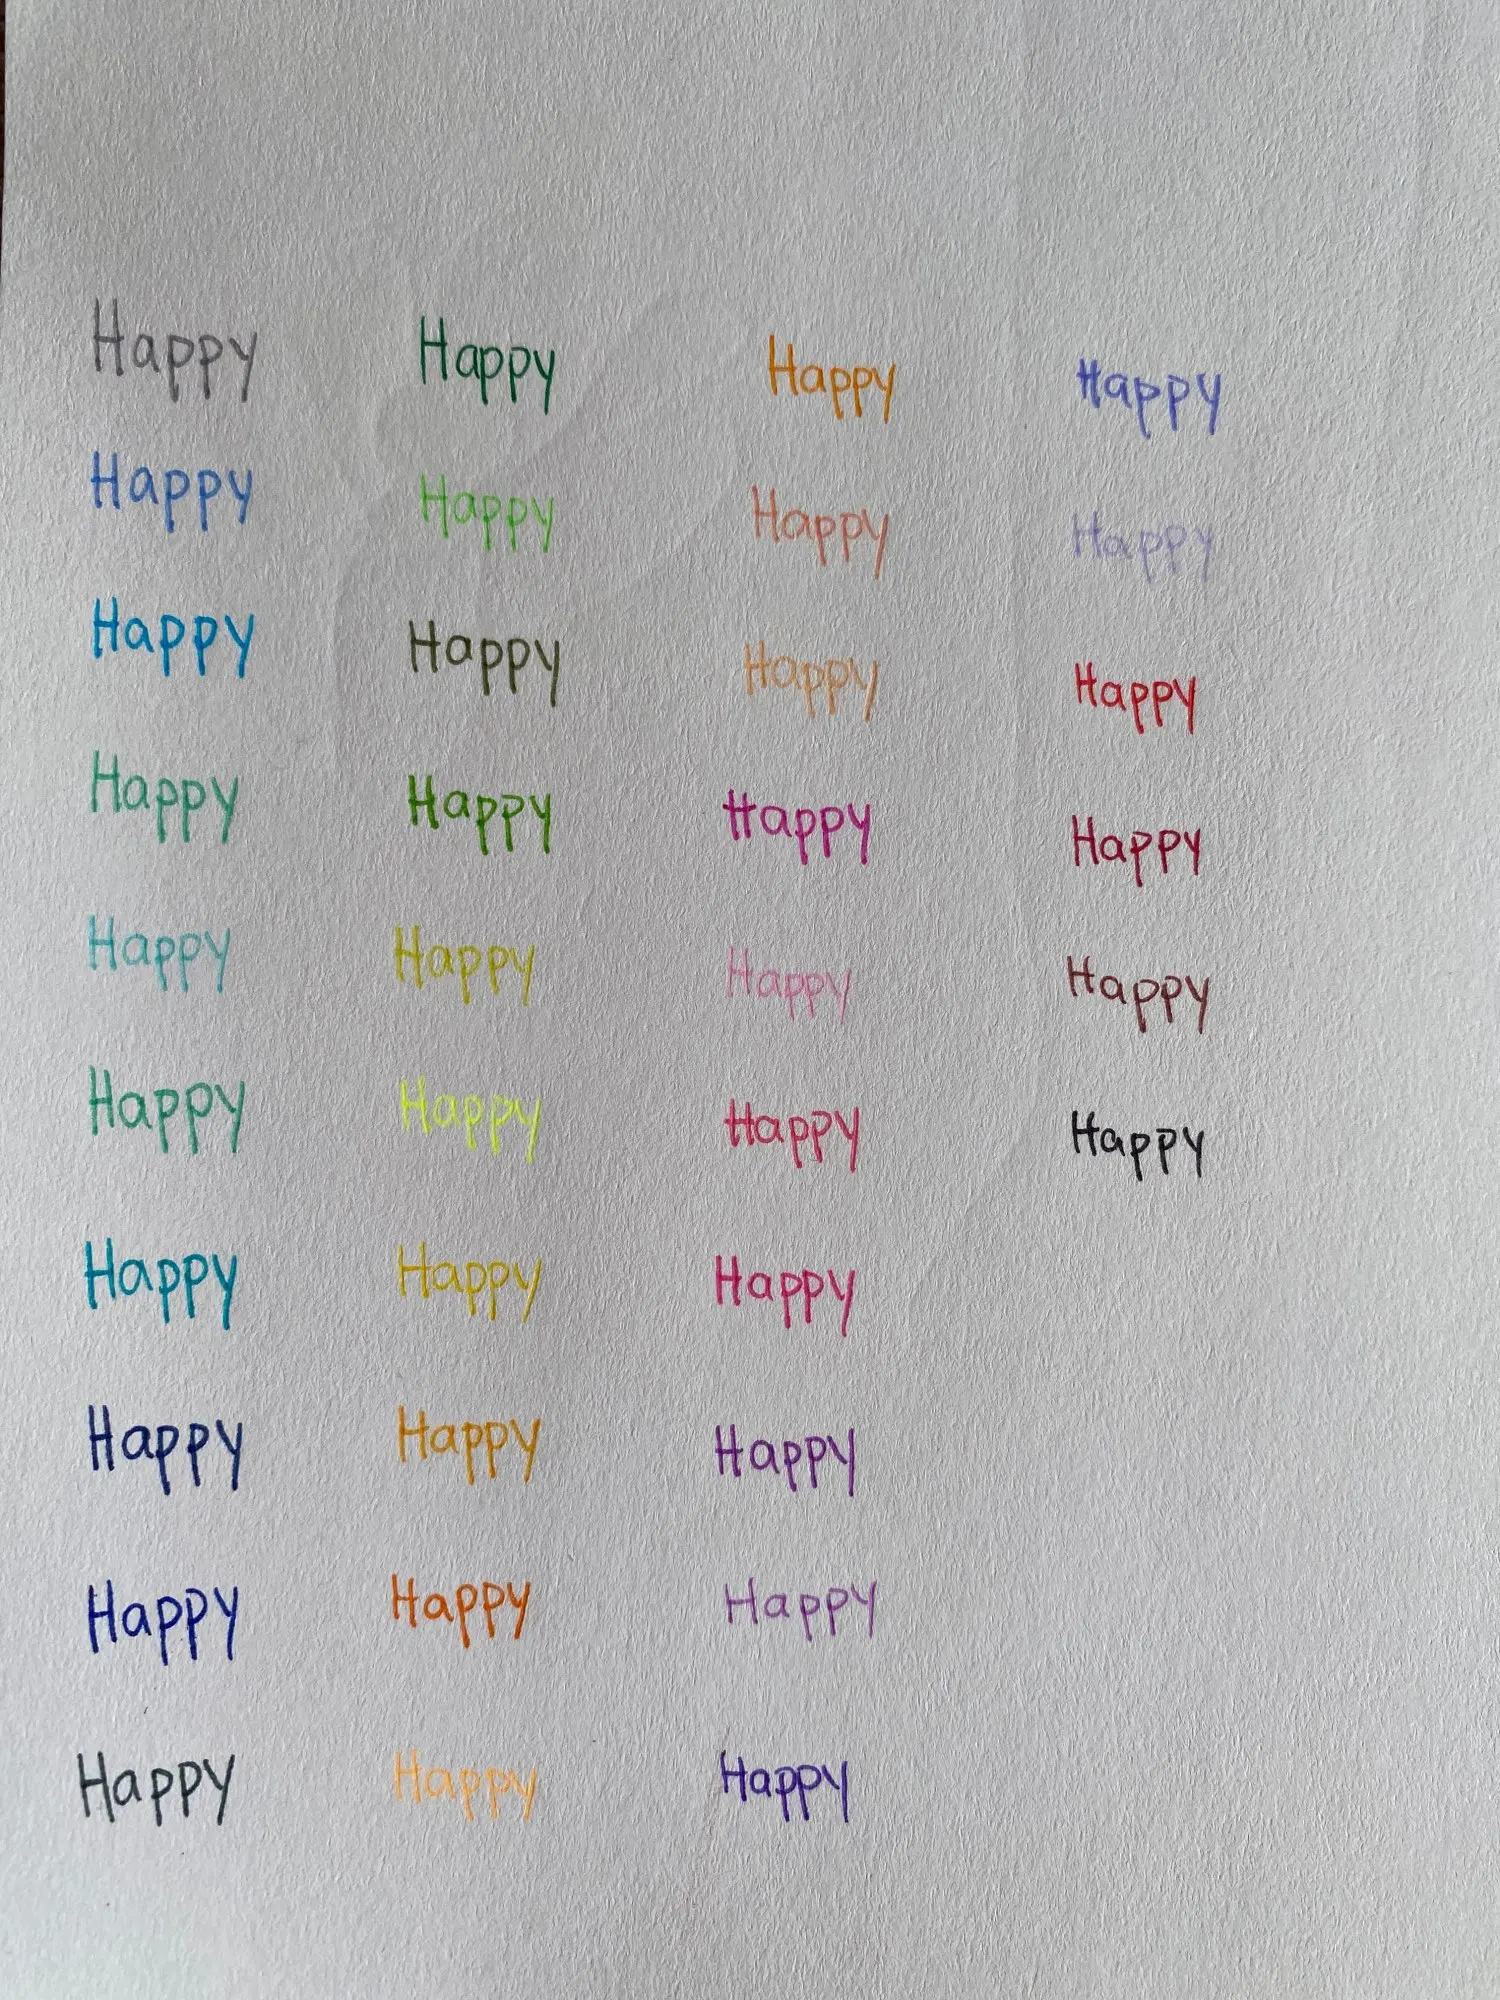 Happy Happy Happy Happy
Happy Happy Happy Happy
Happy Happy Happy Happy
Happy Happy Happy Happy
Happy Happy Happy Happy
Happy Happy Happy Happy
Happy Happy Happy
Happy Happy Happy
Happy Happy Happy
Happy Happy Happy